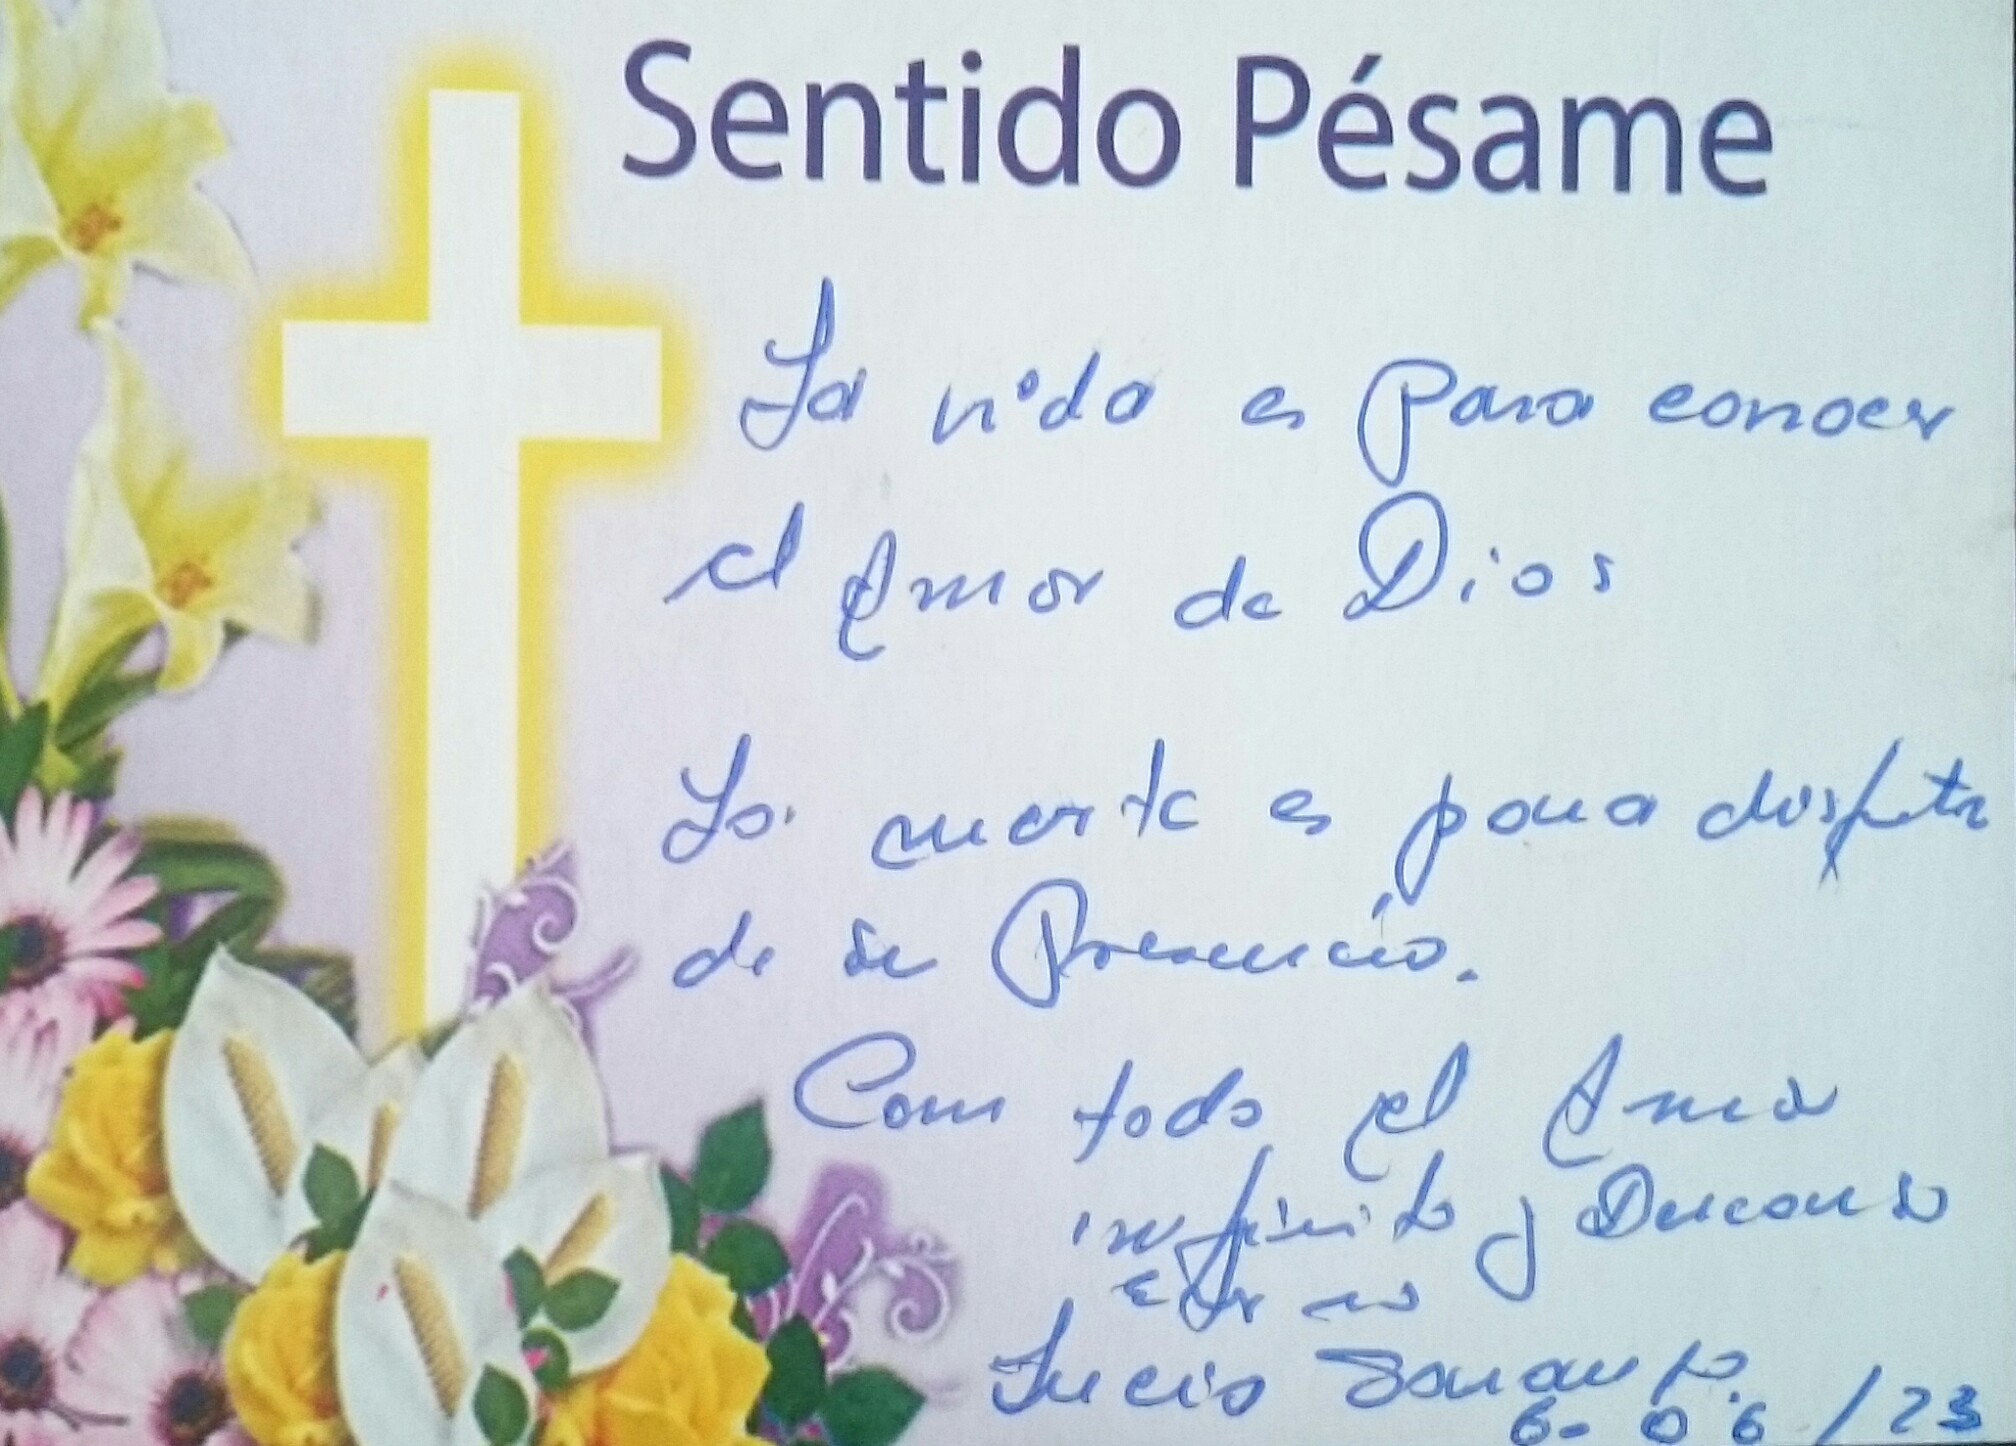 Sentido Pésame
La vida es para conocer
el Amor de Dios
La muerte es para disfrutar
de su Presencia.
Con todo el Amor
infinito y Descanso
eterno
6-06/23